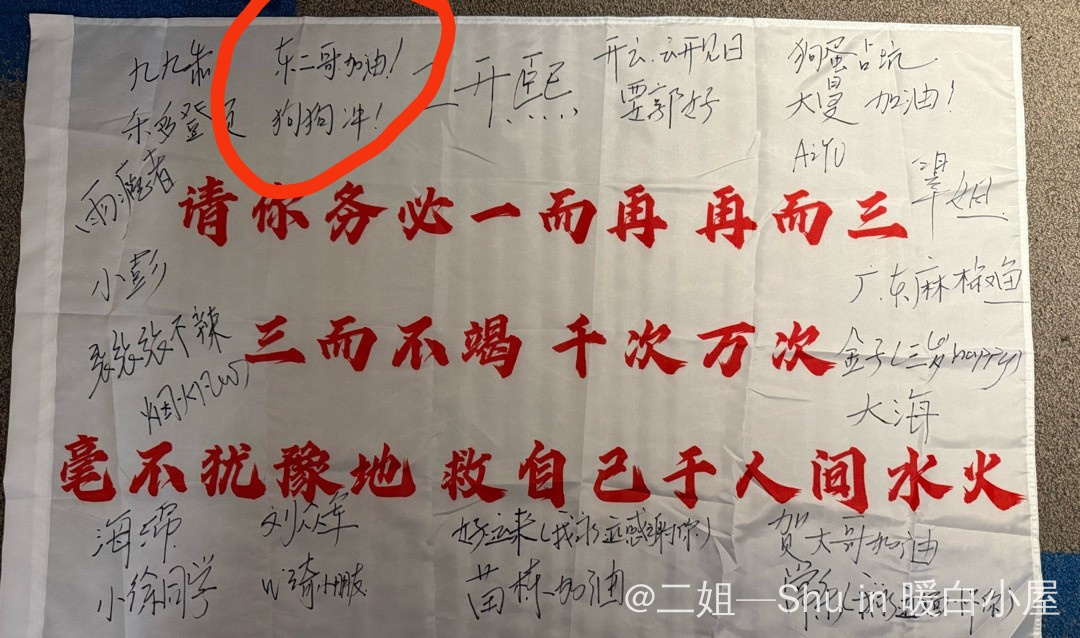 九九
东二哥加油！
狗狗冲！
二开熙
开云、云开见日
要郭好
狗蛋占坑
大曼 加油！
AiYU
请你务必一而再 再而三
小彭
广东麻椒鱼
三而不竭 千次万次
张张张不辣
金子(三岁happy)
大海
毫不犹豫地 救自己于人间水火
海绵
刘众军
好运来(我永远感谢你)
贺大哥加油
小徐同学
苗栋加油
@二姐一Shu in 暖白小屋